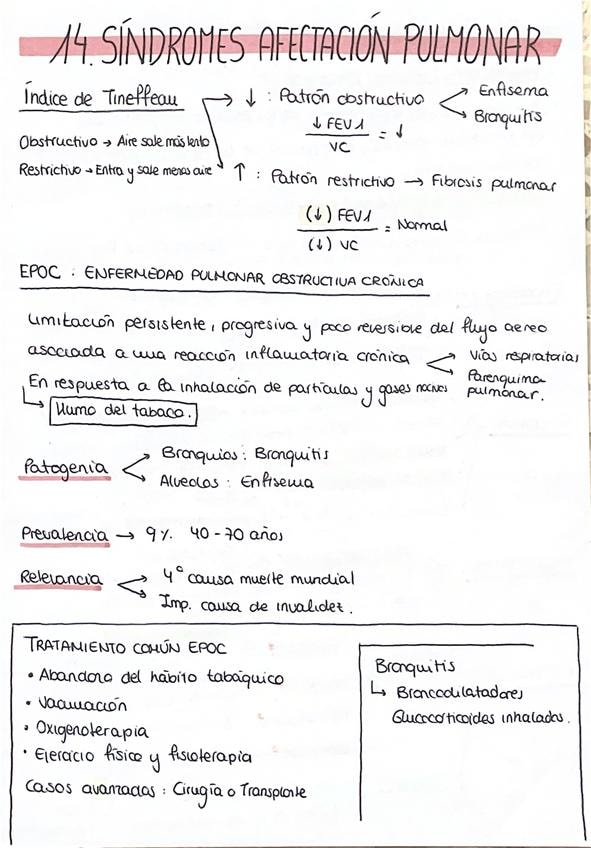 14. SÍNDROMES AFECTACIÓN PULMONAR
Índice de Tineffeau → ↓ : Patrón obstructivo → Enfisema
→ Bronquitis
↓ FEV1
VC
= ↓
Obstructivo → Aire sale más lento
Restrictivo → Entra y sale menos aire ↑ : Patrón restrictivo → Fibrosis pulmonar
(↓) FEV1
(↓) VC
= Normal
EPOC : ENFERMEDAD PULMONAR OBSTRUCTIVA CRÓNICA
Limitación persistente, progresiva y poco reversible del flujo aereo
asociada a una reacción inflamatoria crónica → Vías respiratorias
→ Parenquima pulmonar.
En respuesta a la inhalación de partículas y gases nocivos
→ Humo del tabaco.
Patogenia → Bronquios : Bronquitis
→ Alveolos : Enfisema
Prevalencia → 9%. 40-70 años
Relevancia → 4º causa muerte mundial
→ Imp. causa de invalidez.
TRATAMIENTO COMÚN EPOC
• Abandono del hábito tabáquico
• Vacunación
• Oxigenoterapia
• Ejercicio físico y fisioterapia
Casos avanzados : Cirugía o Transplante
Bronquitis
↳ Broncodilatadores
Glucocorticoides inhalados.